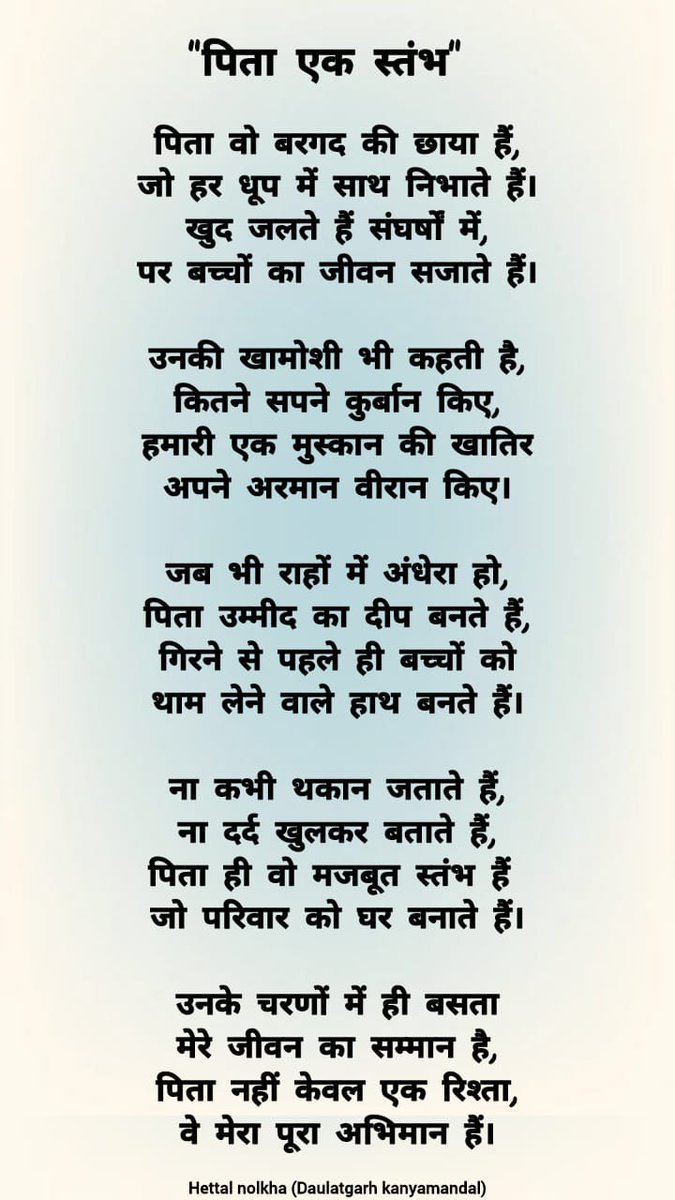 "पिता एक स्तंभ"
पिता वो बरगद की छाया हैं,
जो हर धूप में साथ निभाते हैं।
खुद जलते हैं संघर्षों में,
पर बच्चों का जीवन सजाते हैं।
उनकी खामोशी भी कहती है,
कितने सपने कुर्बान किए,
हमारी एक मुस्कान की खातिर
अपने अरमान वीरान किए।
जब भी राहों में अंधेरा हो,
पिता उम्मीद का दीप बनते हैं,
गिरने से पहले ही बच्चों को
थाम लेने वाले हाथ बनते हैं।
ना कभी थकान जताते हैं,
ना दर्द खुलकर बताते हैं,
पिता ही वो मजबूत स्तंभ हैं
जो परिवार को घर बनाते हैं।
उनके चरणों में ही बसता
मेरे जीवन का सम्मान है,
पिता नहीं केवल एक रिश्ता,
वे मेरा पूरा अभिमान हैं।
Hettal nolkha (Daulatgarh kanyamandal)